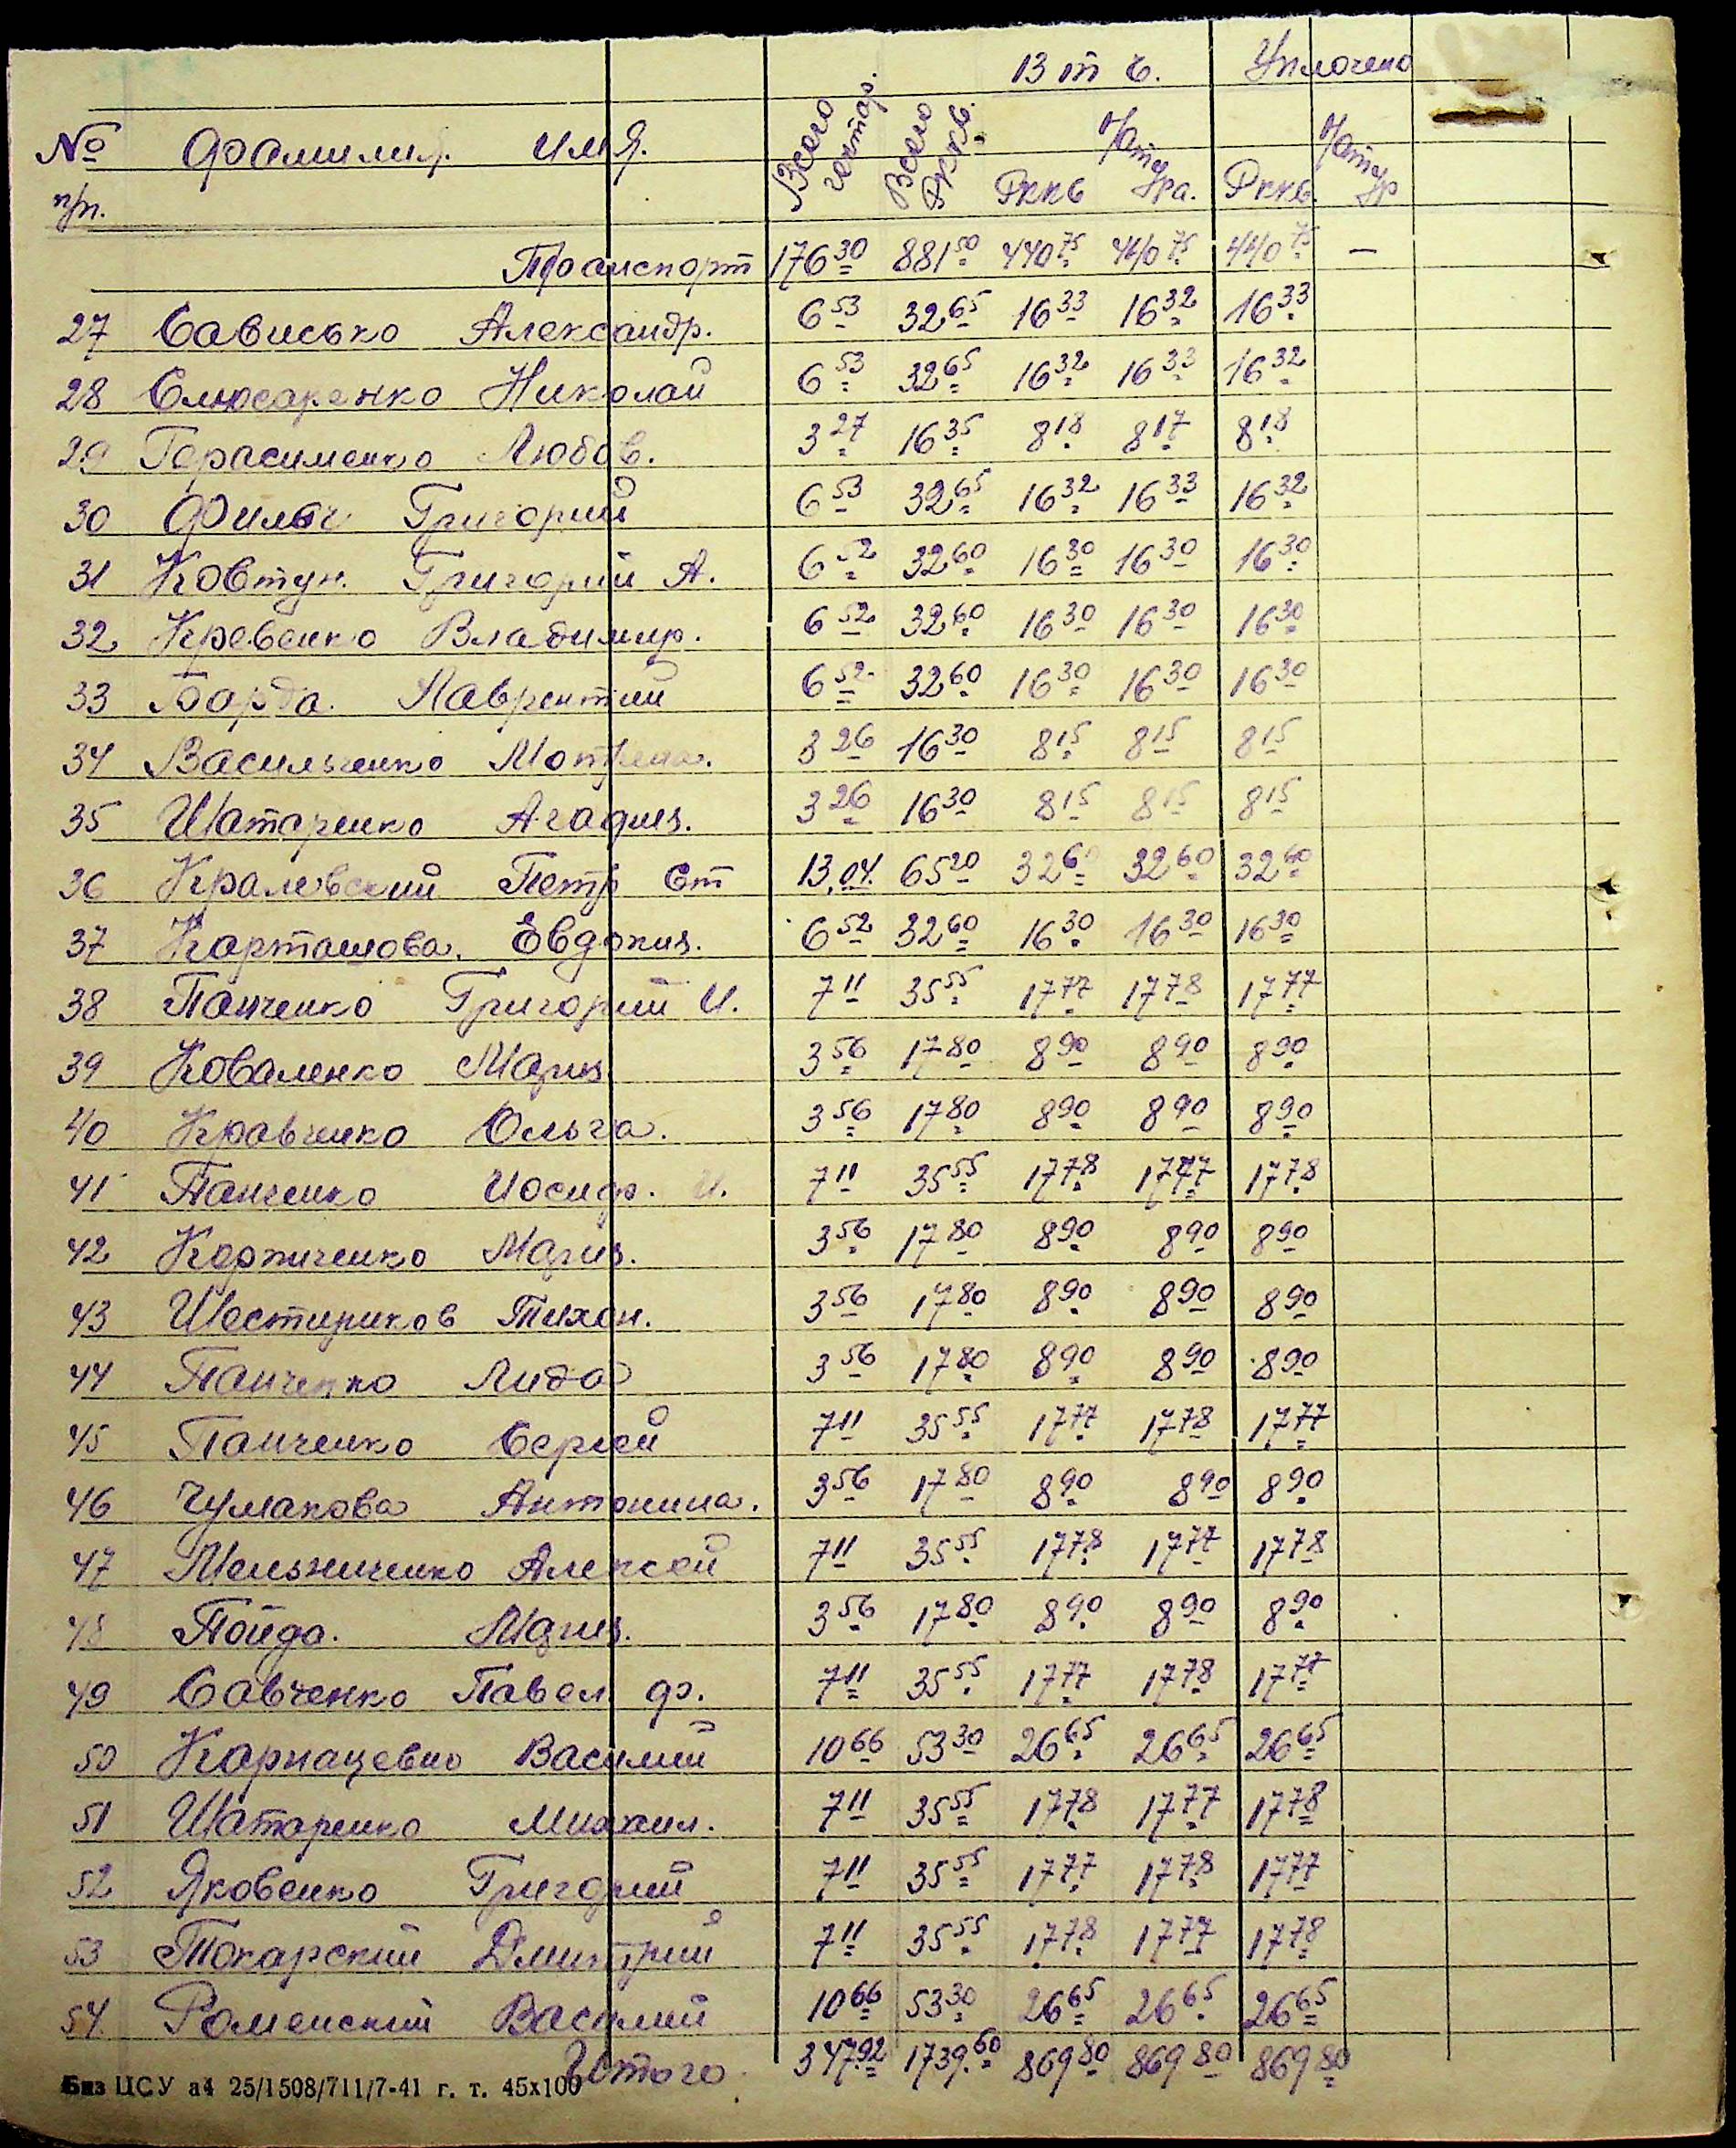 В т ч. Уплочено
№ Фамилия. Имя. Всего гектар. Всего Рккв. Рккв Натура. Рккв. Натур
п/п.
Транспорт 176 30 881 50 440 75 440 75 440 75 —
27 Сависько Александр. 6 53 32 65 16 33 16 32 16 33
28 Слюсаренко Николай 6 53 32 65 16 32 16 33 16 32
29 Герасименко Любов. 3 27 16 35 8 18 8 17 8 18
30 Григорий 6 53 32 65 16 32 16 33 16 32
31 Ковтун. Григорий А. 6 52 32 60 16 30 16 30 16 30
32 Кревенко Владимир. 6 52 32 60 16 30 16 30 16 30
33 Борда. Лаврентий 6 52 32 60 16 30 16 30 16 30
34 Васильченко Мотрена. 3 26 16 30 8 15 8 15 8 15
35 Шатаренко Агафия. 3 26 16 30 8 15 8 15 8 15
36 Кралевский Петр Ст 13,04. 65 20 32 60 32 60 32 60
37 Карташова. Евдокия. 6 52 32 60 16 30 16 30 16 30
38 Панченко Григорий И. 7 11 35 55 17 77 17 78 17 77
39 Коваленко Мария 3 56 17 80 8 90 8 90 8 90
40 Кравченко Ольга. 3 56 17 80 8 90 8 90 8 90
41 Панченко Иосиф. И. 7 11 35 55 17 78 17 77 17 78
42 Корниченко Мария. 3 56 17 80 8 90 8 90 8 90
43 Шестириков Тихон. 3 56 17 80 8 90 8 90 8 90
44 Панченко Лида 3 56 17 80 8 90 8 90 8 90
45 Панченко Сергей 7 11 35 55 17 77 17 78 17 77
46 Чумакова Антонина. 3 56 17 80 8 90 8 90 8 90
47 Мельниченко Алексей 7 11 35 55 17 78 17 77 17 78
48 Пойда. Мария. 3 56 17 80 8 90 8 90 8 90
49 Савченко Павел Ф. 7 11 35 55 17 77 17 78 17 77
50 Василий 10 66 53 30 26 65 26 65 26 65
51 Шатаренко Михаил. 7 11 35 55 17 78 17 77 17 78
52 Яковенко Григорий 7 11 35 55 17 77 17 78 17 77
53 Токарский Дмитрий 7 11 35 55 17 78 17 77 17 78
54. Роменский Василий 10 66 53 30 26 65 26 65 26 65
Итого 347.92 1739.60 869 80 869 80 869 80
Биз ЦСУ а4 25/1508/711/7-41 г. т. 45х100